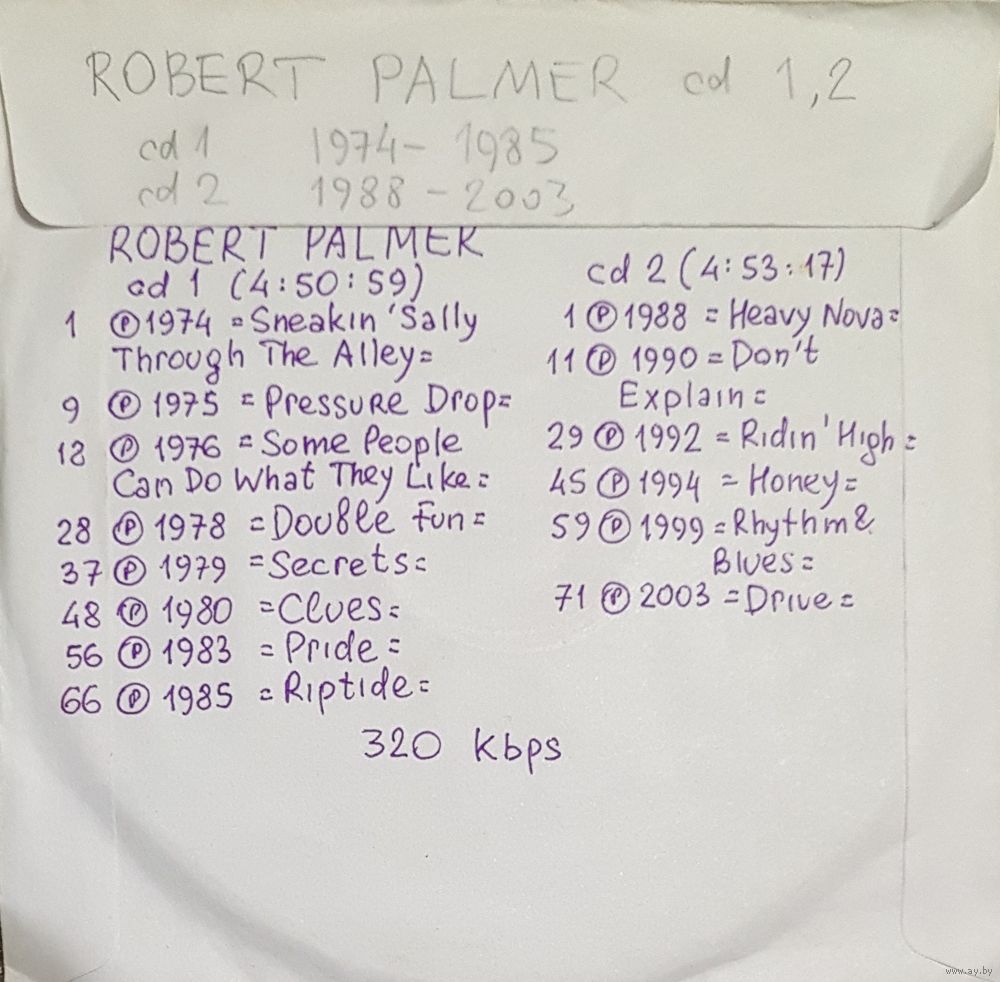 ROBERT PALMER cd 1,2
cd 1 1974- 1985
cd 2 1988 - 2003
ROBERT PALMER
cd 1 (4:50:59)
1 Ⓟ 1974 = Sneakin' Sally
Through The Alley=
9 Ⓟ 1975 = Pressure Drop=
18 Ⓟ 1976 = Some People
Can Do What They Like=
28 Ⓟ 1978 = Double Fun=
37 Ⓟ 1979 = Secrets=
48 Ⓟ 1980 = Clues=
56 Ⓟ 1983 = Pride=
66 Ⓟ 1985 = Riptide=
cd 2 (4:53:17)
1 Ⓟ 1988 = Heavy Nova=
11 Ⓟ 1990 = Don't
Explain=
29 Ⓟ 1992 = Ridin' High=
45 Ⓟ 1994 = Honey=
59 Ⓟ 1999 = Rhythm &
Blues=
71 Ⓟ 2003 = Drive=
320 kbps
www.ay.by